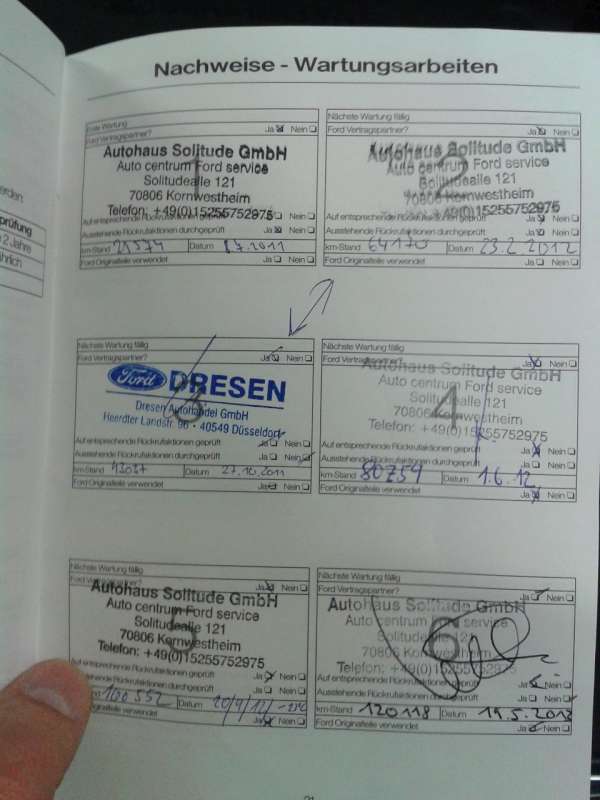 erden
prüfung
2 Jahre
ährlich
Nachweise - Wartungsarbeiten
Erste Wartung
Ford Vertragspartner? Ja Nein
1
Autohaus Solitude GmbH
Auto centrum Ford service
Solitudealle 121
70806 Kornwestheim
Telefon: +49(0)15255752975
Auf entsprechende Rückrufaktionen geprüft Ja Nein
Ausstehende Rückrufaktionen durchgeführt Ja Nein
km-Stand Datum 2011
Ford Originalteile verwendet Ja Nein
Nächste Wartung fällig
Ford Vertragspartner? Ja Nein
2
Autohaus Solitude GmbH
Auto centrum Ford service
Solitudealle 121
70806 Kornwestheim
Telefon: +49(0)15255752975
Auf entsprechende Rückrufaktionen geprüft Ja Nein
Ausstehende Rückrufaktionen durchgeführt Ja Nein
km-Stand 64170 Datum 23.2.2012
Ford Originalteile verwendet Ja Nein
Nächste Wartung fällig
Ford Vertragspartner? Ja Nein
3
Ford DRESEN
Dresen Autohandel GmbH
Heerdter Landstr. 96 - 40549 Düsseldorf
Auf entsprechende Rückrufaktionen geprüft Ja Nein
Ausstehende Rückrufaktionen durchgeführt Ja Nein
km-Stand Datum 27.10.2011
Ford Originalteile verwendet Ja Nein
Nächste Wartung fällig
Ford Vertragspartner? Ja Nein
4
Autohaus Solitude GmbH
Auto centrum Ford service
Solitudealle 121
70806 Kornwestheim
Telefon: +49(0)15255752975
Auf entsprechende Rückrufaktionen geprüft Ja Nein
Ausstehende Rückrufaktionen durchgeführt Ja Nein
km-Stand 80259 Datum 1.6.12
Ford Originalteile verwendet Ja Nein
Nächste Wartung fällig
Ford Vertragspartner? Ja Nein
5
Autohaus Solitude GmbH
Auto centrum Ford service
Solitudealle 121
70806 Kornwestheim
Telefon: +49(0)15255752975
Auf entsprechende Rückrufaktionen geprüft Ja Nein
Ausstehende Rückrufaktionen durchgeführt Ja Nein
100552 Datum
Originalteile verwendet Ja Nein
Nächste Wartung fällig
Ford Vertragspartner? Ja Nein
6
Autohaus Solitude GmbH
Auto centrum Ford service
Solitudealle 121
70806 Kornwestheim
Telefon: +49(0)15255752975
Auf entsprechende Rückrufaktionen geprüft Ja Nein
Ausstehende Rückrufaktionen durchgeführt Ja Nein
km-Stand 120118 Datum 19.5.2013
Ford Originalteile verwendet Ja Nein